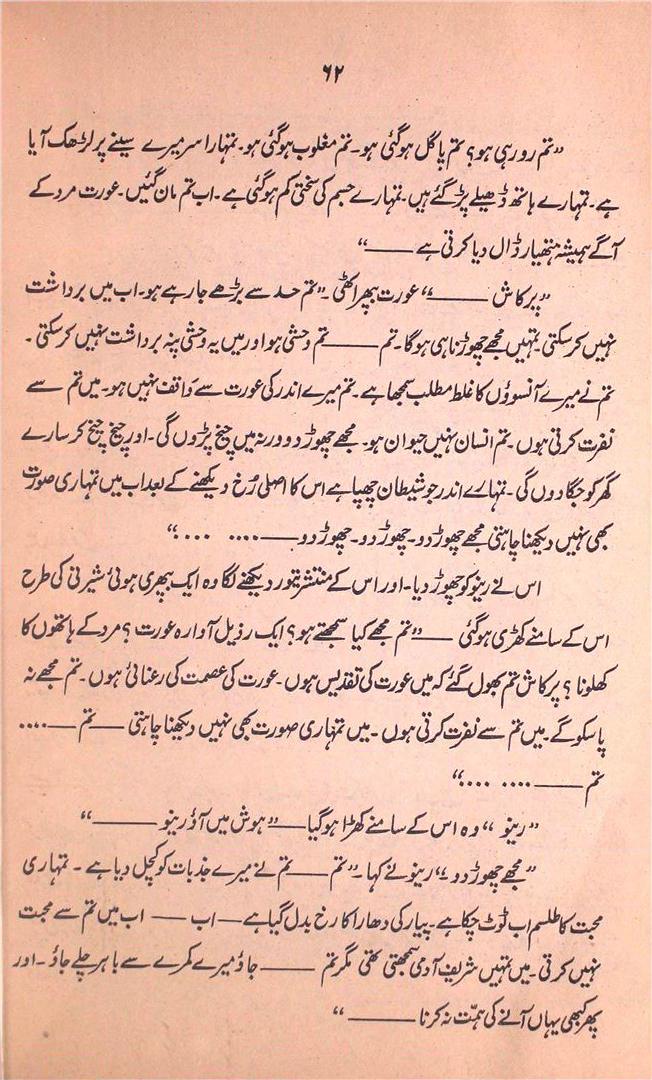 ۶۲
”تم رو رہی ہو؟ تم پاگل ہوگئی ہو۔ تم مغلوب ہوگئی ہو۔ تمہارا سر میرے سینے پر لڑھک آیا
ہے۔ تمہارے ہاتھ ڈھیلے پڑ گئے ہیں۔ تمہارے جسم کی سختی کم ہوگئی ہے۔ اب تم مان گئیں۔ عورت مرد کے
آگے ہمیشہ ہتھیار ڈال دیا کرتی ہے ——“
”پرکاش ——“ عورت بپھر اٹھی۔ ”تم حد سے بڑھے جا رہے ہو۔ اب میں برداشت
نہیں کرسکتی۔ تمہیں مجھے چھوڑنا ہی ہوگا۔ تم —— تم وحشی ہو اور میں یہ وحشی پنہ برداشت نہیں کرسکتی۔
تم نے میرے آنسوؤں کا غلط مطلب سمجھا ہے۔ تم میرے اندر کی عورت سے واقف نہیں ہو۔ میں تم سے
نفرت کرتی ہوں۔ تم انسان نہیں حیوان ہو۔ مجھے چھوڑ دو ورنہ میں چیخ پڑوں گی۔ اور چیخ چیخ کر سارے
گھر کو جگا دوں گی۔ تمہاے اندر جو شیطان چھپا ہے اس کا اصلی رُخ دیکھنے کے بعد اب میں تمہاری صورت
بھی نہیں دیکھنا چاہتی مجھے چھوڑ دو۔ چھوڑ دو۔ چھوڑ دو —— .... ....“
اس نے رینو کو چھوڑ دیا۔ اور اس کے منتشر تیور دیکھنے لگا وہ ایک بپھری ہوئی شیرنی کی طرح
اس کے سامنے کھڑی ہوگئی —— ”تم مجھے کیا سمجھتے ہو؟ ایک رذیل آوارہ عورت؟ مرد کے ہاتھوں کا
کھلونا؟ پرکاش تم بھول گئے کہ میں عورت کی تقدیس ہوں۔ عورت کی عصمت کی رعنائی ہوں۔ تم مجھے نہ
پاسکو گے۔ میں تم سے نفرت کرتی ہوں۔ میں تمہاری صورت بھی نہیں دیکھنا چاہتی —— تم —— ....
تم —— .... ....“
”رینو“ وہ اس کے سامنے کھڑا ہوگیا —— ”ہوش میں آؤ رینو ——“
”مجھے چھوڑ دو“ رینو نے کہا۔ ”تم —— تم نے میرے جذبات کو کچل دیا ہے۔ تمہاری
محبت کا طلسم اب ٹوٹ چکا ہے۔ پیار کی دھارا کا رخ بدل گیا ہے —— اب —— اب میں تم سے محبت
نہیں کرتی۔ میں تمہیں شریف آدمی سمجھتی تھی مگر تم —— جاؤ میرے کمرے سے باہر چلے جاؤ۔ اور
پھر کبھی یہاں آنے کی ہمّت نہ کرنا ——“